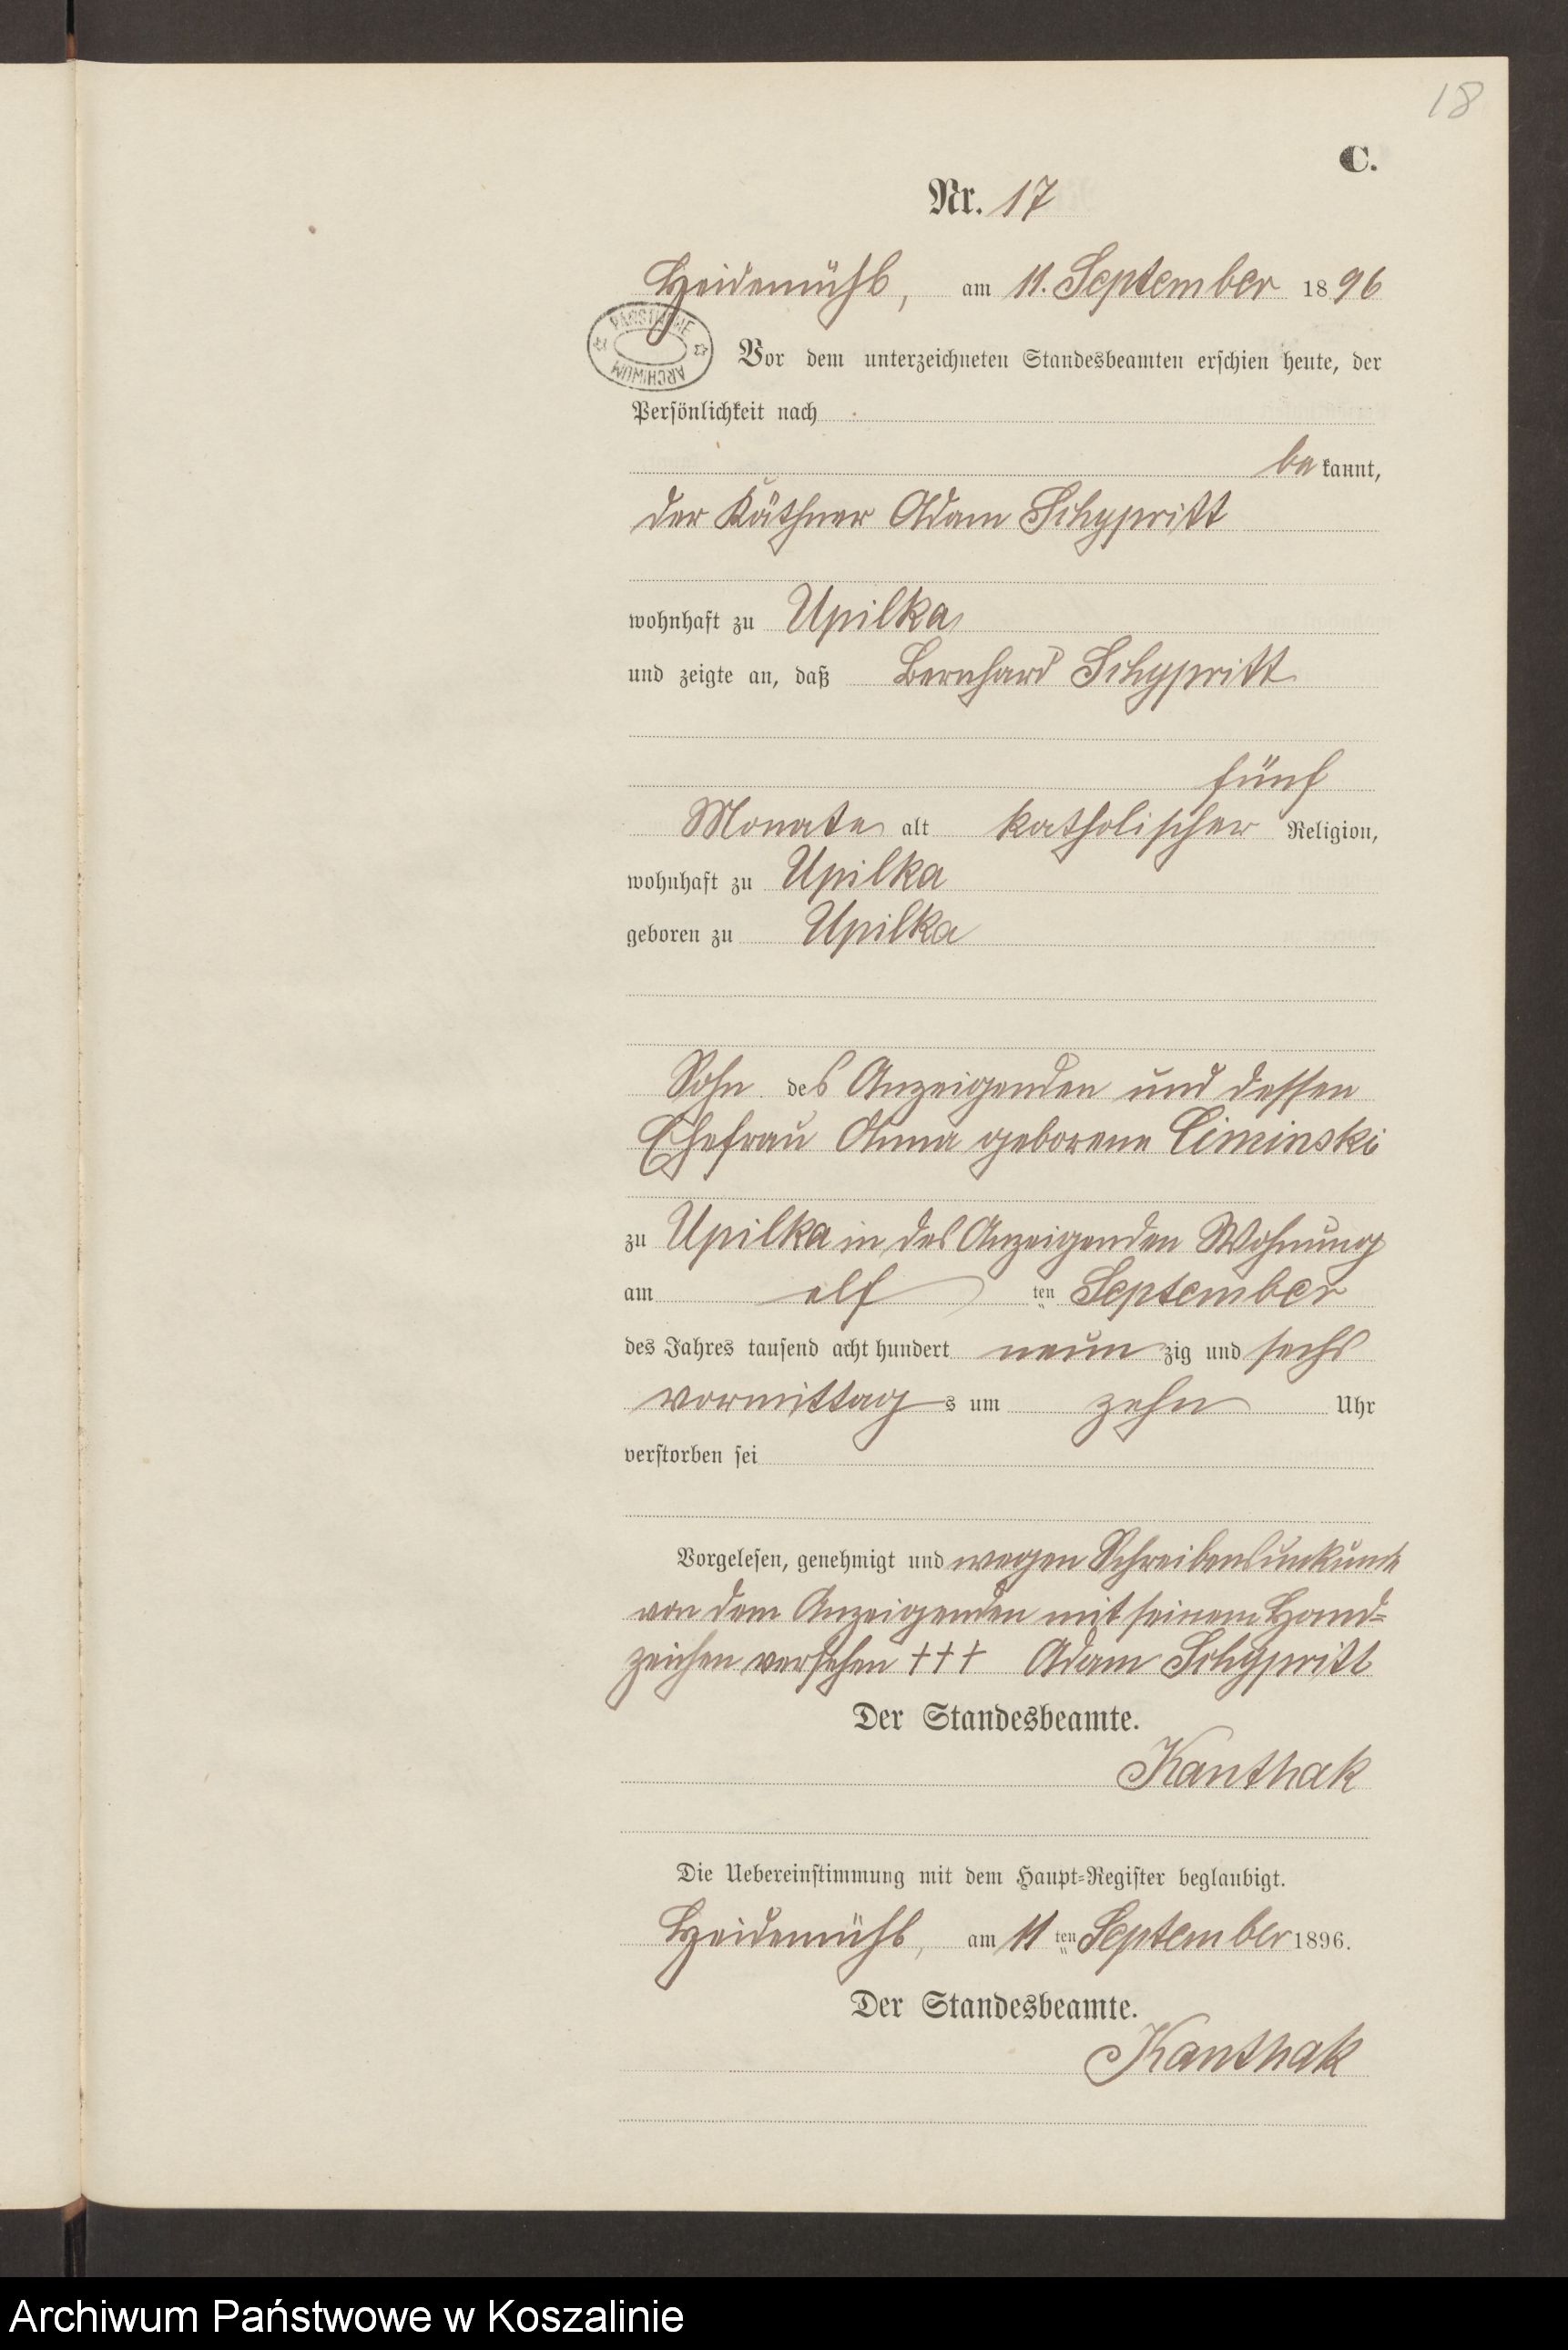 18
C.
Nr. 17
Heidemühl, am 11. September 1896
PAŃSTWOWE ARCHIWUM
Vor dem unterzeichneten Standesbeamten erschien heute, der
Persönlichkeit nach
bekannt,
der Käthner Adam Schypritt
wohnhaft zu Upilka
und zeigte an, daß Bernhard Schypritt
fünf
Monate alt katholischer Religion,
wohnhaft zu Upilka
geboren zu Upilka
Sohn des Anzeigenden und dessen
Ehefrau Anna geborene Ciminski
zu Upilka in des Anzeigenden Wohnung
am elf ten September
des Jahres tausend acht hundert neunzig und sechs
vormittags um zehn Uhr
verstorben sei
Vorgelesen, genehmigt und wegen Schreibensunkunde
von dem Anzeigenden mit seinem Hand=
zeichen versehen +++ Adam Schypritt
Der Standesbeamte.
Kanthak
Die Uebereinstimmung mit dem Haupt=Register beglaubigt.
Heidemühl, am 11ten September 1896.
Der Standesbeamte.
Kanthak
Archiwum Państwowe w Koszalinie